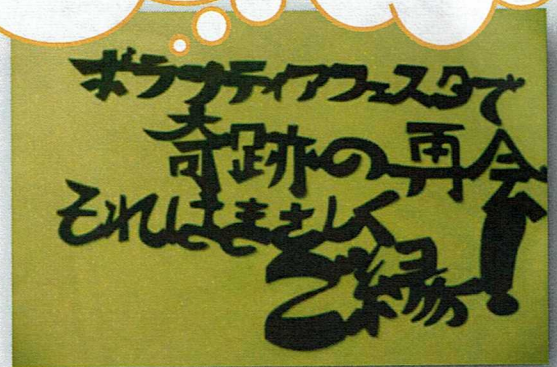 ボランティアフェスタで
奇跡の再会
それはまさしく
ご縁!